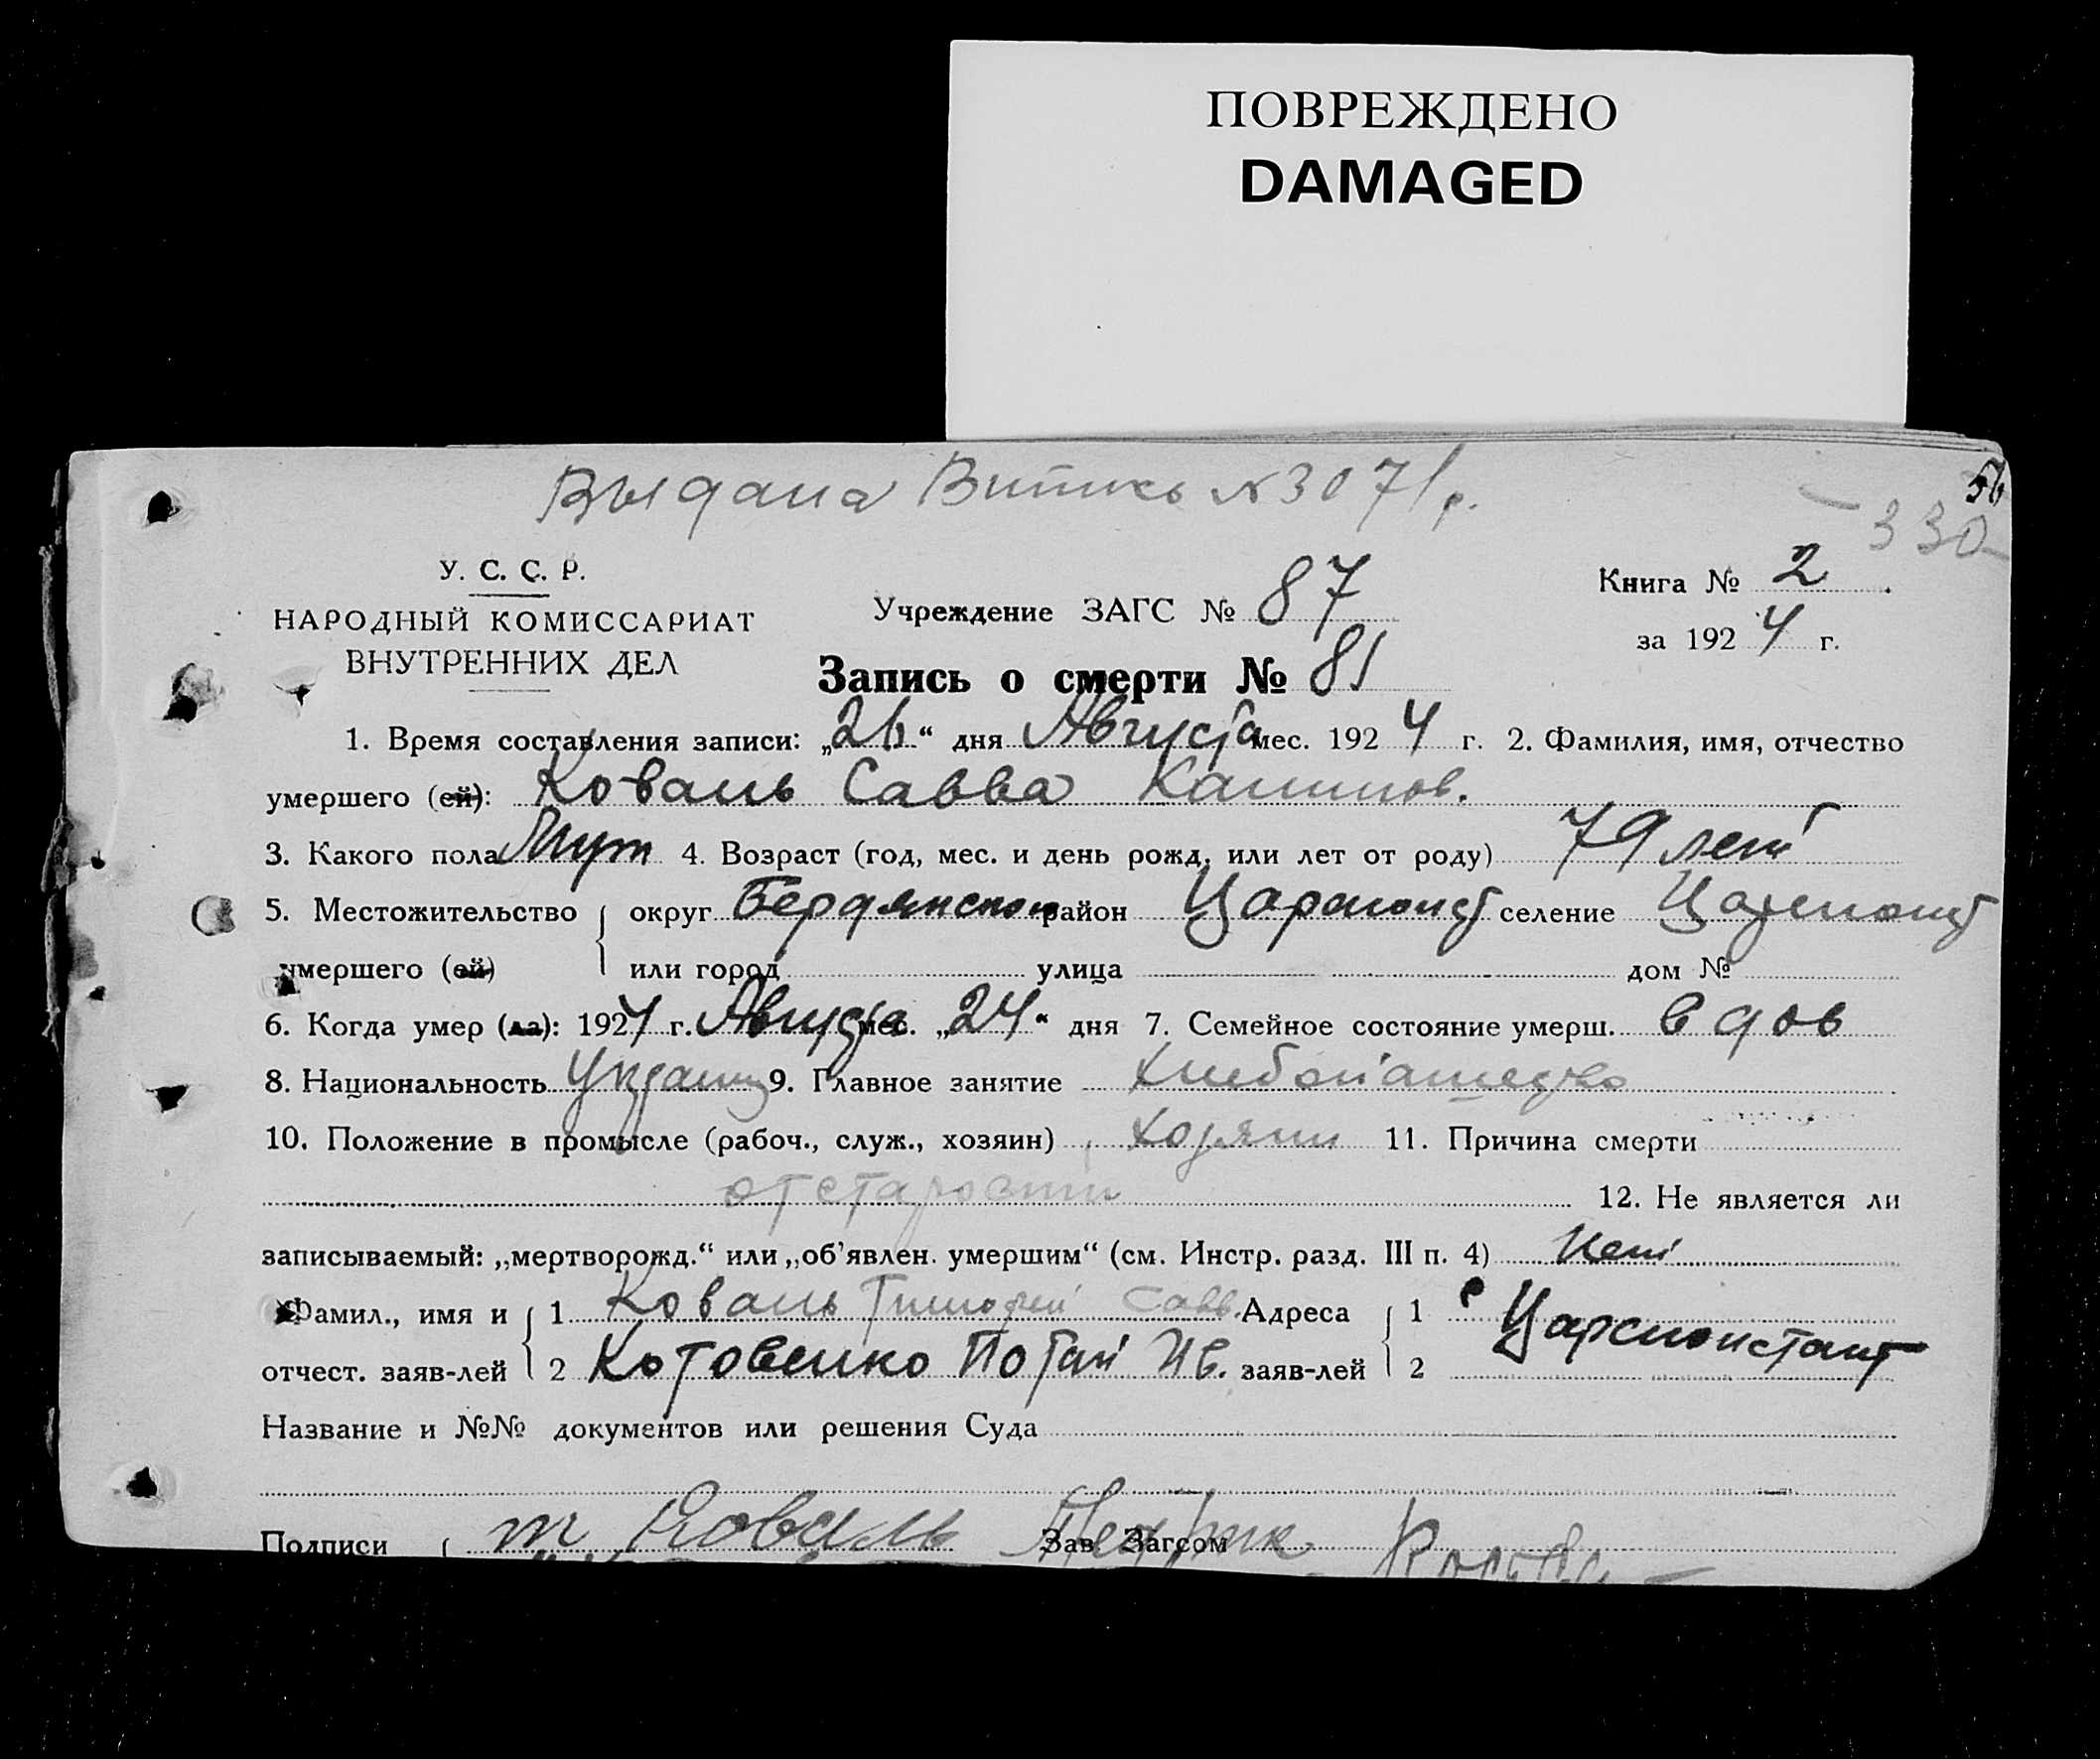 ПОВРЕЖДЕНО
DAMAGED
Выдана Витись №307/р.
56
330
У. С. С. Р.
НАРОДНЫЙ КОМИССАРИАТ
ВНУТРЕННИХ ДЕЛ
Учреждение ЗАГС № 87
Книга № 2
за 1924 г.
Запись о смерти № 81
1. Время составления записи: „26“ дня Августа мес. 1924 г. 2. Фамилия, имя, отчество
умершего (ей): Коваль Савва
3. Какого пола Муж 4. Возраст (год, мес. и день рожд. или лет от роду) 79 лет
5. Местожительство округ Бердянском район Цареконст селение Цареконст
умершего (ей) или город улица дом №
6. Когда умер (ла): 1924 г. Августа мес. „24“ дня 7. Семейное состояние умерш. вдов
8. Национальность Украинц 9. Главное занятие хлебопашество
10. Положение в промысле (рабоч., служ., хозяин) хозяин 11. Причина смерти
от старости 12. Не является ли
записываемый: „мертворожд.“ или „об'явлен. умершим“ (см. Инстр. разд. III п. 4) Нет
Фамил., имя и 1 Коваль Тимофей Савв. Адреса 1 с Царконстант
отчест. заяв-лей 2 Котовенко Потап Ив. заяв-лей 2
Название и №№ документов или решения Суда
Подписи Т Коваль Зав Загсом